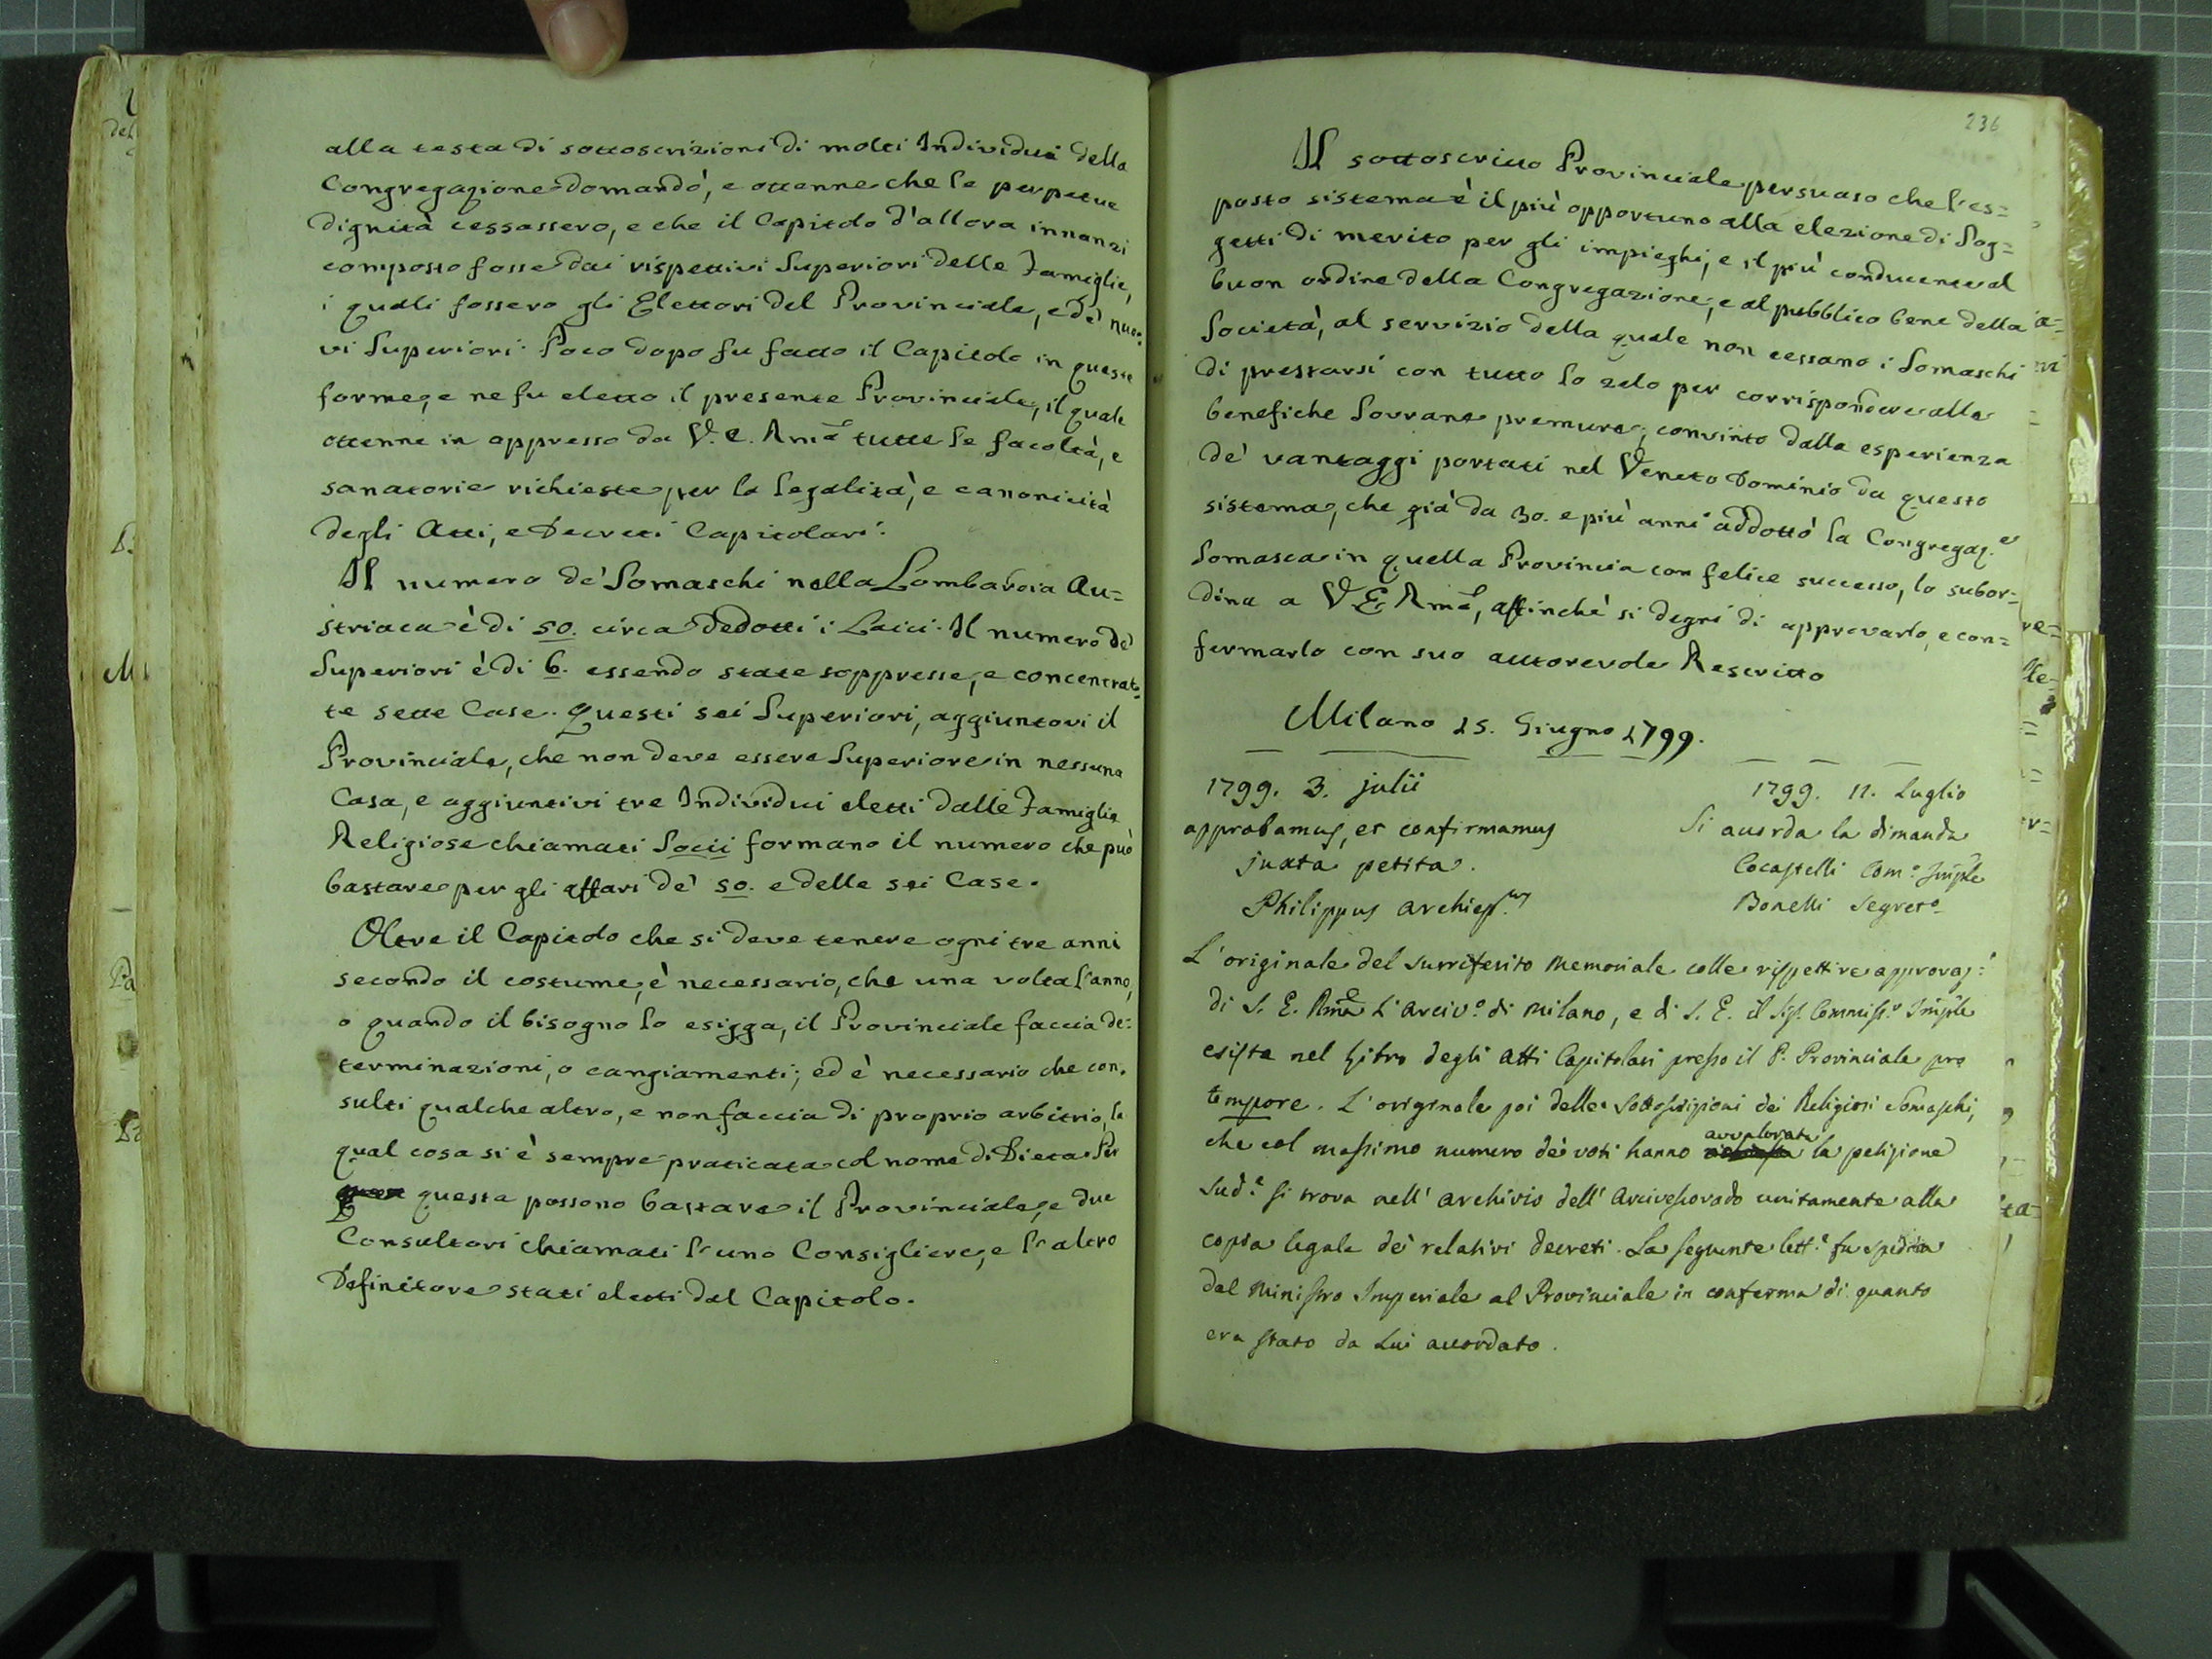 alla testa di sottoscrizioni di molti Individui della
Congregazione domandò, e ottenne che le perpetue
dignità cessassero, e che il Capitolo d'allora innanzi
composto fosse dai rispettivi Superiori delle Famiglie,
i quali fossero gli Elettori del Provinciale, e de' nuo=
vi Superiori. Poco dopo fu fatto il Capitolo in queste
forme, e ne fu eletto il presente Provinciale, il quale
ottenne in appresso da V. E. Rma tutte le facoltà, e
sanatorie richieste per la legalità, e canonicità
degli Atti, e Decreti Capitolari.
Il numero de' Somaschi nella Lombardia Au=
striaca è di 50. circa dedotti i Laici. Il numero de'
Superiori è di 6. essendo state soppresse, e concentrat=
te sette Case. Questi sei Superiori, aggiuntovi il
Provinciale, che non deve essere Superiore in nessuna
Casa, e aggiuntivi tre Individui eletti dalle Famiglie
Religiose chiamati Socii formano il numero che può
bastare per gli affari de' 50. e delle sei Case.
Oltre il Capitolo che si deve tenere ogni tre anni
secondo il costume, è necessario, che una volta l'anno,
o quando il bisogno lo esigga, il Provinciale faccia de=
terminazioni, o cangiamenti; ed è necessario che con=
sulti qualche altro, e non faccia di proprio arbitrio, la
qual cosa si è sempre praticata col nome di Dieta. Per
questa possono bastare il Provinciale, e due
Consultori chiamati l'uno Consigliere, e l'altro
Definitore stati eletti dal Capitolo.
236
Il sottoscritto Provinciale persuaso che l'es=
posto sistema è il più opportuno alla elezione di Sog=
getti di merito per gli impieghi, e il più conducente al
buon ordine della Congregazione, e al pubblico bene della
Società, al servizio della quale non cessano i Somaschi
di prestarsi con tutto lo zelo per corrispondere alle
benefiche Sovrane premure; convinto dalla esperienza
de' vantaggi portati nel Veneto Dominio da questo
sistema, che già da 30. e più anni addottò la Congregaz.e
Somasca in quella Provincia con felice successo, lo subor=
dina a V. E. Rma, affinchè si degni di approvarlo, e con=
fermarlo con suo autorevole Rescritto
Milano 25. Giugno 1799.
1799. 3. julii
approbamus, et confirmamus
juxta petita.
Philippus Archiep.us
1799. 11. Luglio
Si accorda la dimanda
Cocastelli Com.o Imple
Bonelli Segret.o
L'originale del surriferito Memoriale colle rispettive approvaz.i
di S. E. Rma L'Arciv.o di Milano, e di S. E. il Sig. Commiss.o Imple
esiste nel Libro degli Atti Capitolari presso il P. Provinciale pro
tempore. L'originale poi delle Sottoscrizioni dei Religiosi Somaschi,
che col massimo numero dei voti hanno avvalorata la petizione
sud.a si trova nell'Archivio dell'Arcivescovado unitamente alla
copia legale dei relativi decreti. La seguente lett.a fu spedita
dal Ministro Imperiale al Provinciale in conferma di quanto
era stato da Lui accordato.